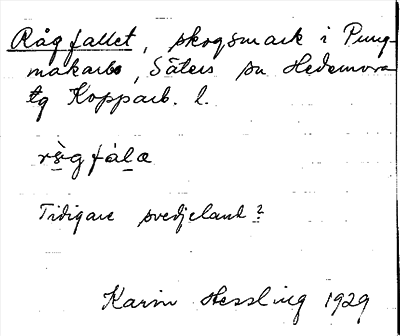 Rågfallet, skogsmark i Pung-
makarbo, Säters sn Hedemora
tg Kopparb. l.
Tidigare svedjeland?
Karin Hessling 1929